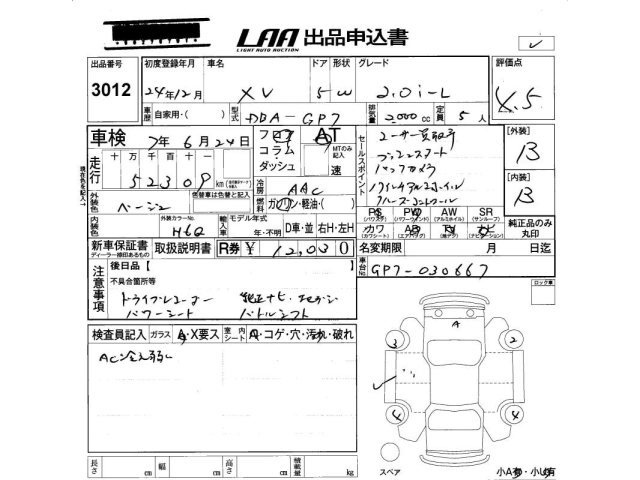 LAA 出品申込書
LIGHT AUTO AUCTION
出品番号 初度登録年月 車名 ドア 形状 グレード 評価点
3012 24年12月 XV 5 W 2.0i-L
車歴 自家用・( ) 型式 DBA-GP7 排気量 2,000 cc 定員 5 人
車検 7年 6月 24日 フロア AT セールスポイント ユーザー買取号 [外装] B
コラム MTのみ記入 プッシュスタート
ダッシュ 速 バックカメラ
走行 十 万 千 百 十 一
52309 km
現在色を記入 外装色 ベージュ 色替車は色替と記入 冷房 AAC 17インチアルミホイール [内装] B
燃料 ガソリン・軽油・( ) クルーズコントロール
内装色 外装カラーNo. H6Q 輸入車 モデル年式 年・不明 D車・並 右H・左H
PS PW AW SR 純正品のみ丸印
(パワステ) (パワーウィンド) (アルミホイール) (サンルーフ)
カワ AB TV ナビ
(カワシート) (エアバッグ) (ナビゲーション)
新車保証書 取扱説明書 R券 ¥ 12,030 名変期限 月 日迄
ディーラー捺印あるもの
車台No. GP7-030667
注意事項 後日品【
不具合箇所等
ドライブレコーダー 純正ナビ、地デジ
パワーシート パドルシフト
ロック車
検査員記入 ガラス A・X要ス 室内シート A・コゲ・穴・汚れ・破れ
AC冷え弱し
A
3 2
4 4
長さ cm 幅 cm 高さ cm 積載量 kg
スペア 小A有・小U有